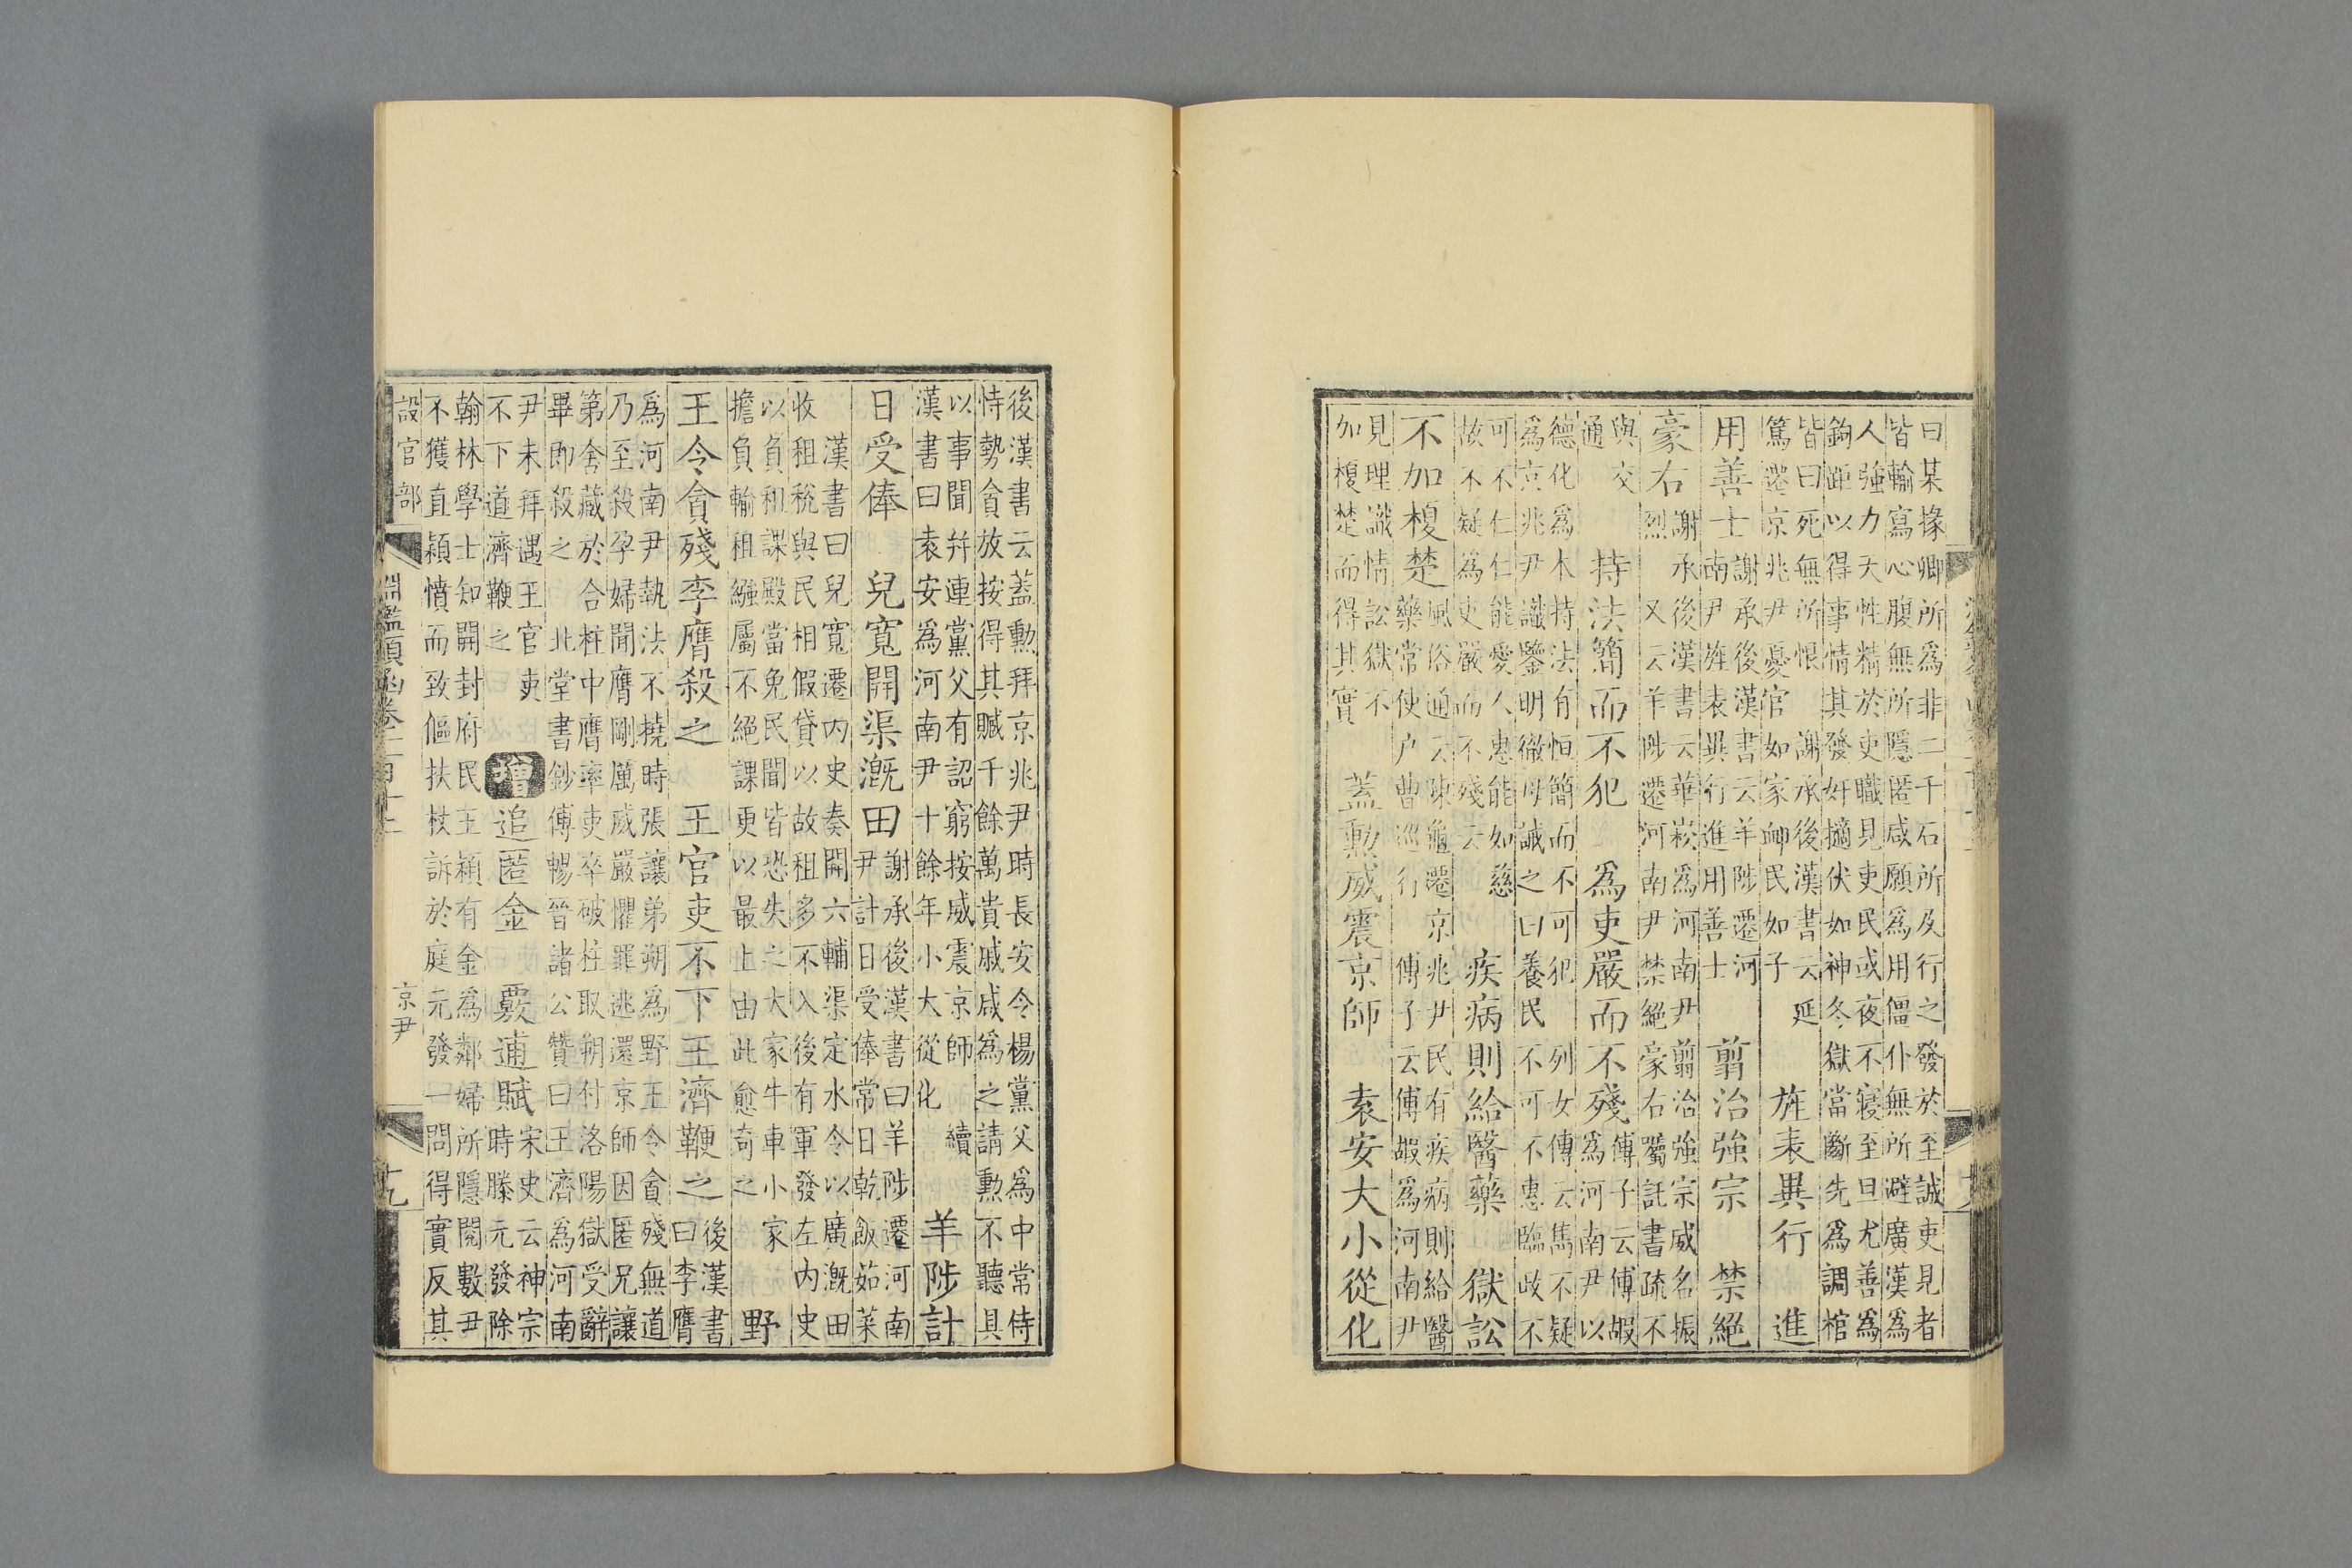 曰某掾卿所為非二千石所及行之發於至誠吏見者
皆輸寫心腹無所隱匿咸願為用僵仆無所避廣漢為
人強力天性精於吏職見吏民或夜不寢至旦尤善為
鉤距以得事情其發奸擿伏如神冬獄當斷先為調棺
皆曰死無所恨　謝承後漢書云延
篤遷京兆尹憂官如家卹民如子
旌表異行　進
用善士
謝承後漢書云羊陟遷河
南尹旌表異行進用善士
翦治強宗　禁絕
豪右
謝承後漢書云華崧為河南尹翦治強宗威名振
烈　又云羊陟遷河南尹禁絕豪右囑託書疏不
與交
通
持法簡而不犯　為吏嚴而不殘
傅子云傅嘏
為河南尹以
德化為本持法有恒簡而不可犯　列女傳云雋不疑
為京兆尹讖鑒明徹母誡之曰養民不可不惠臨歧不
可不仁仁能愛人惠能如慈
故不疑為吏嚴而不殘云
疾病則給醫藥　獄訟
不加榎楚
風俗通云陳龜遷京兆尹民有疾病則給醫
藥常使户曹巡行　傅子云傅嘏為河南尹
見理識情訟獄不
加榎楚而得其實
蓋勲威震京師　袁安大小從化
後漢書云蓋勲拜京兆尹時長安令楊黨父為中常侍
恃勢貪放按得其贓千餘萬貴戚咸為之請勲不聽具
以事聞并連黨父有詔窮按威震京師　續
漢書曰袁安為河南尹十餘年小大從化
羊陟計
日受俸　兒寬開渠溉田
謝承後漢書曰羊陟遷河南
尹計日受俸常日乾飯茹菜
漢書曰兒寬遷內史奏開六輔渠定水令以廣溉田
收租稅與民相假貸以故租多不入後有軍發左內史
以負租課殿當免民聞皆恐失之大家牛車小家
擔負輸租繈屬不絕課更以最上由此愈奇之
野
王令貪殘李膺殺之　王官吏不下王濟鞭之
後漢書
曰李膺
為河南尹執法不撓時張讓弟朔為野王令貪殘無道
乃至殺孕婦聞膺剛厲威嚴懼罪逃還京師因匿兄讓
第舍藏於合柱中膺率吏卒破柱取朔付洛陽獄受辭
畢即殺之　北堂書鈔傅暢晉諸公贊曰王濟為河南
尹未拜遇王官吏
不下道濟鞭之
增追匿金　覈逋賦
宋史云神宗
時滕元發除
翰林學士知開封府民王穎有金為鄰婦所隱閱數尹
不獲直穎憤而致傴扶杖訴於庭元發一問得實反其
設官部
淵鑑類函卷一百十二
京尹
十九